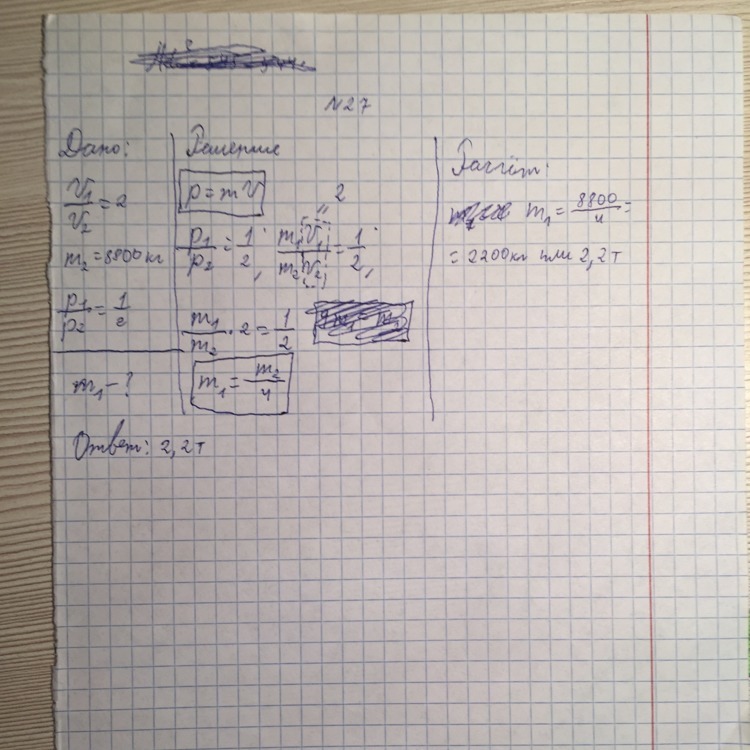 №27
Дано:
V₁/V₂ = 2
m₂ = 8800 кг
p₁/p₂ = 1/2
m₁ - ?
Решение
p = mV
2
p₁/p₂ = 1/2; m₁V₁/m₂V₂ = 1/2;
m₁/m₂ · 2 = 1/2
m₁ = m₂/4
Расчёт:
m₁ = 8800/4 =
= 2200 кг или 2,2 т
Ответ: 2,2 т